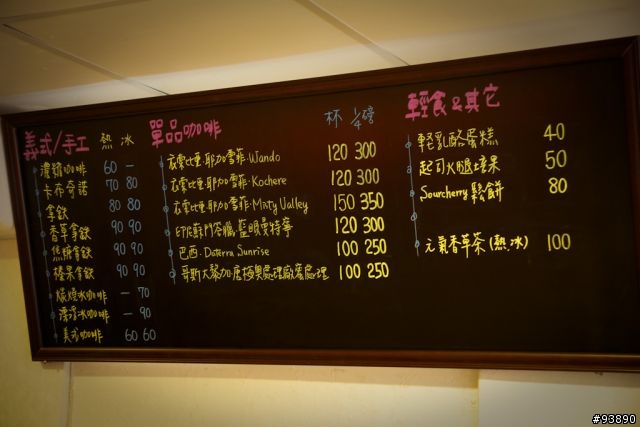 義式/手工 熱 冰
濃縮咖啡 60 —
卡布奇諾 70 80
拿鐵 80 80
香草拿鐵 90 90
焦糖拿鐵 90 90
榛果拿鐵 90 90
碳燒冰咖啡 — 70
漂浮冰咖啡 — 90
美式咖啡 60 60
單品咖啡 杯 1/4磅
衣索比亞.耶加雪菲.Wando 120 300
衣索比亞.耶加雪菲.Kochere 120 300
衣索比亞.耶加雪菲.Misty Valley 150 350
印尼蘇門答臘,藍眼曼特寧 120 300
巴西.Daterra Sunrise 100 250
哥斯大黎加 處理 100 250
輕食&其它
輕乳酪蛋糕 40
起司火腿培果 50
Sourcherry鬆餅 80
元氣香草茶(熱.冰) 100
#93890